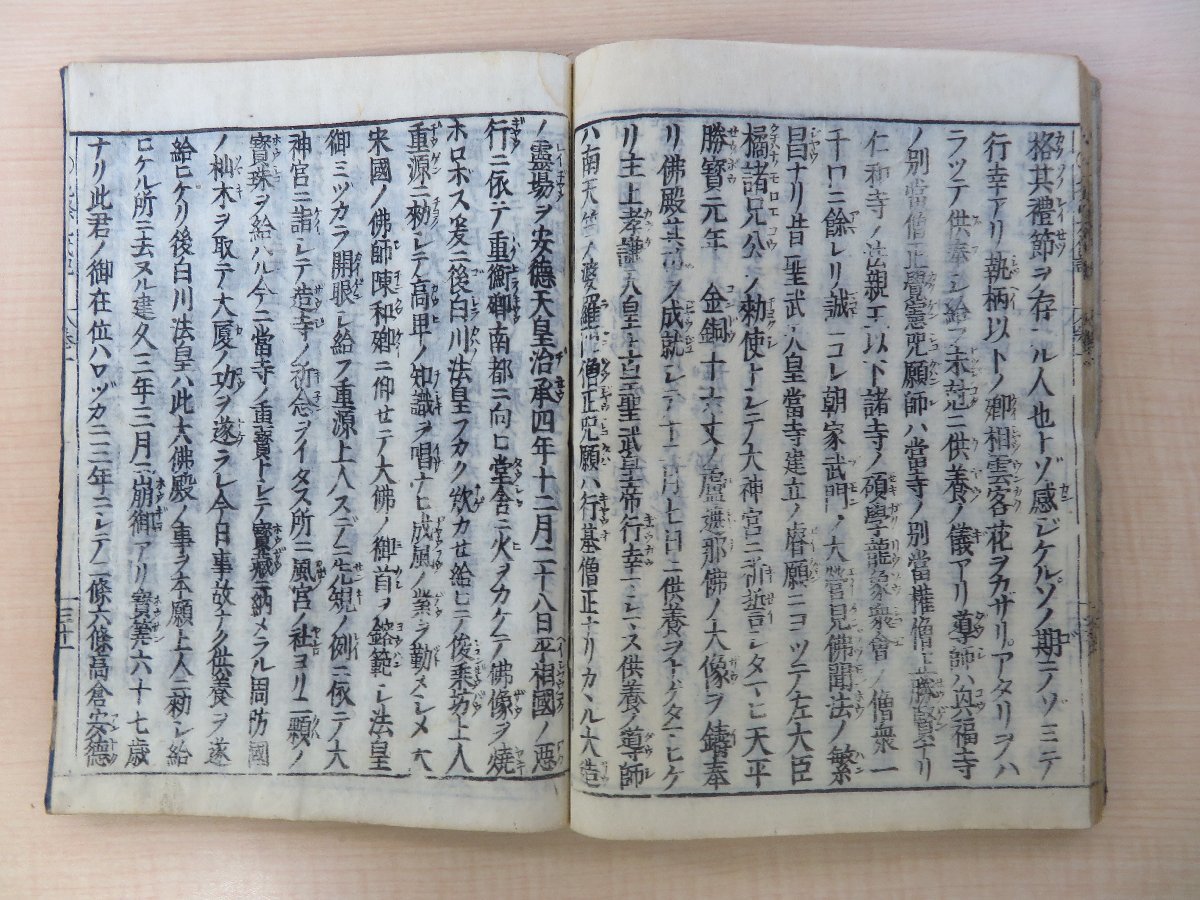 格其禮節ヲ存スル人也トゾ感ジケルソノ期ニノソミテ
行幸アリ執柄以下ノ卿相雲客花ヲカザリアタリヲハ
ラツテ供奉シ給フ未刻ニ供養ノ儀アリ導師ハ興福寺
ノ別當僧正覺憲呪願師ハ當寺ノ別當權僧正勝賢ナリ
仁和寺ノ法親王以下諸寺ノ碩學龍象衆會ノ僧衆一
千口ニ餘レリ誠ニコレ朝家武門ノ大營見佛聞法ノ繁
昌ナリ昔聖武天皇當寺建立ノ磨願ニヨツテ左大臣
橘諸兄公ヲ勅使トシテ大神宮ニ祈誓シタマヒ天平
勝寶元年 金銅十六丈ノ盧遮那佛ノ大像ヲ鑄奉
リ佛殿其功ヲ成就シテ十二月七日ニ供養ヲトゲタマヒケ
リ主上孝謙天皇上皇聖武皇帝行幸マシマス供養ノ導師
ハ南天竺ノ婆羅門僧正呪願ハ行基僧正ナリカヽル大造
ノ靈場ヲ安德天皇治承四年十二月二十八日平相國ノ惡
行ニ依テ重衡卿南都ニ向ヒ堂舎ニ火ヲカケテ佛像ヲ燒
ホロボス爰ニ後白川法皇フカク歎カせ給ヒテ俊乗坊上人
重源ニ勅シテ高卑ノ知識ヲ唱ヘ七成風ノ業ヲ勤メシメ大
宋國ノ佛師陳和卿ニ仰せテ大佛ノ御首ヲ鎔範シ法皇
御ミヅカラ開眼シ給フ重源上人スデニ先規ノ例ニ依テ大
神宮ニ詣シテ造寺ノ祈念ヲイタス所ニ風宮ノ社ヨリ二顆ノ
寳珠ヲ給ハル今ニ當寺ノ重寳トシテ寳蔵ニ納メラル周防國
ノ杣木ヲ取テ大厦ノ功ヲ遂ラレ今日事故ナク供養ヲ遂
給ヒケリ後白川法皇ハ此大佛殿ノ事ヲ本願上人ニ勅シ給
ヒケル所ニ去ヌル建久三年三月ニ崩御アリ寳算六十七歳
ナリ此君ノ御在位ハワヅカニ三年ニシテ二條六條高倉安德